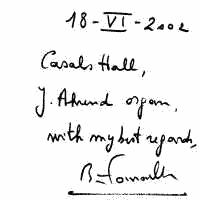 18-VI-2002
Casals Hall,
J. Ahrend organ,
with my best regards,